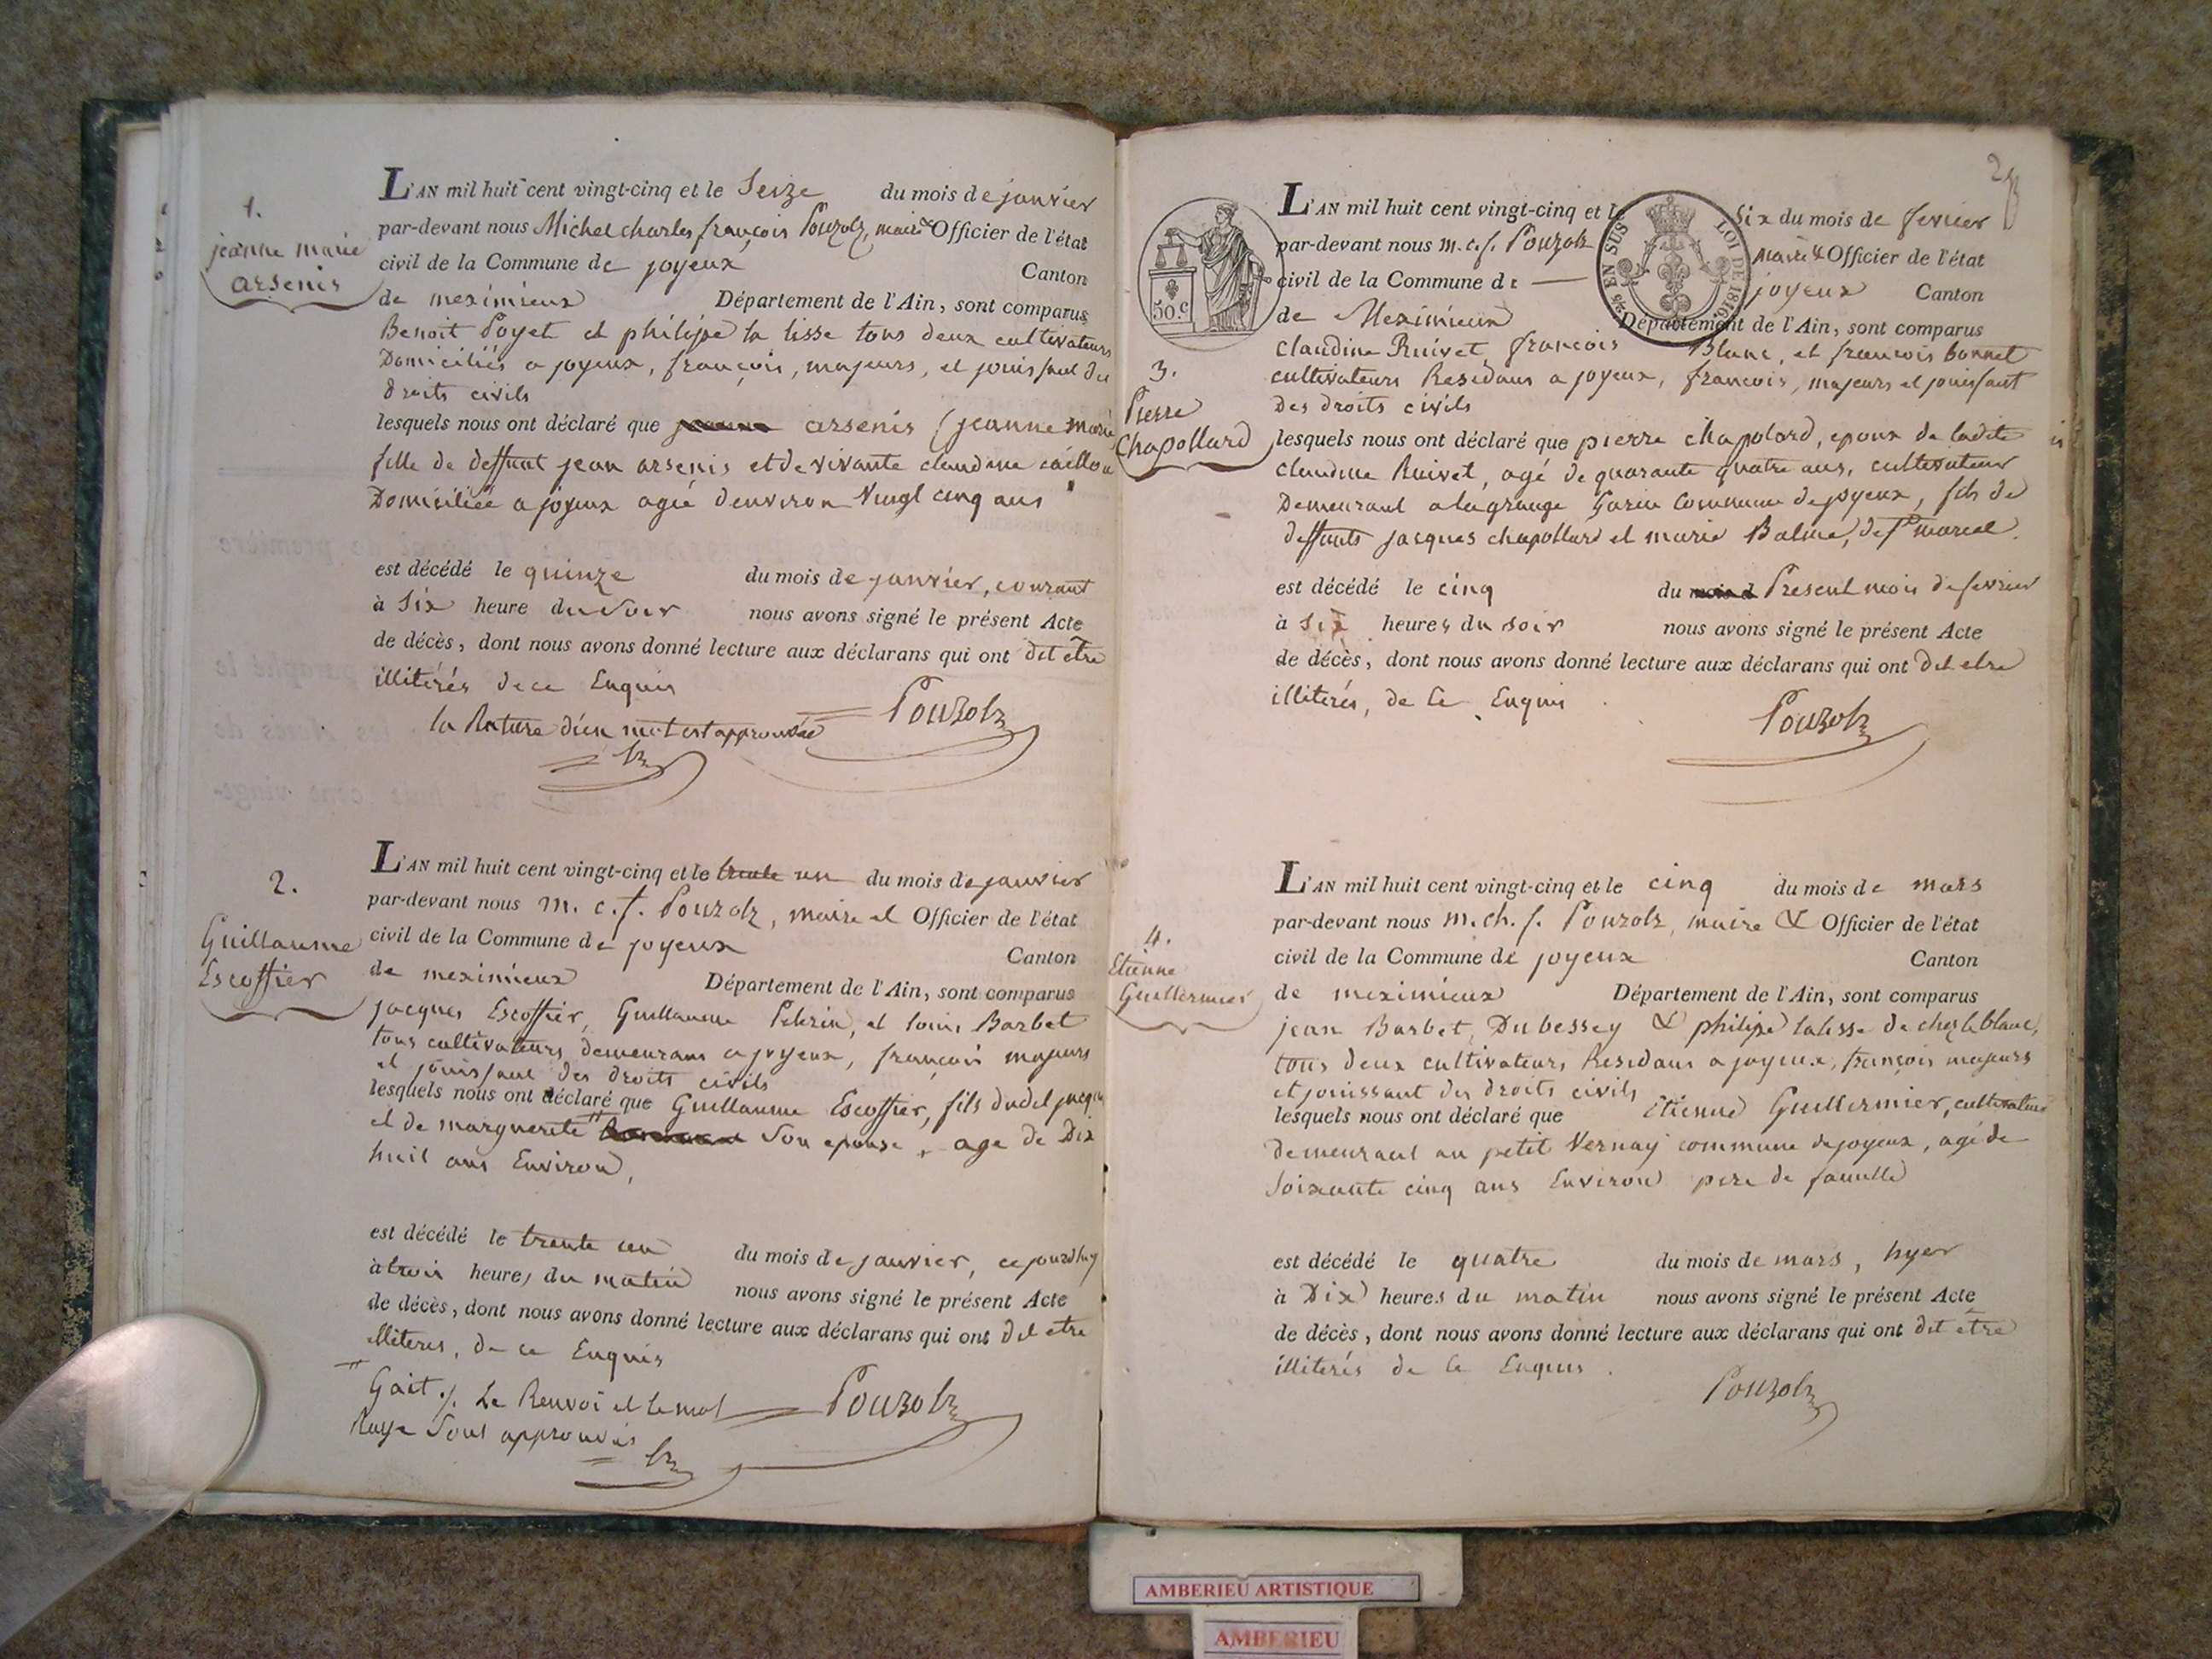 1.
jeanne marie
arsenis
L'AN mil huit cent vingt-cinq et le Seize du mois de janvier
par-devant nous Michel charles françois Pouzolz, maire & Officier de l'état
civil de la Commune de joyeux Canton
de meximieux Département de l'Ain, sont comparus
Benoit Poyet et philippe la lisse tous deux cultivateurs
Domiciliés a joyeux, françois, majeurs, et jouissant des
droits civils
lesquels nous ont déclaré que arsenis (jeanne marie
fille de deffunt jean arsenis et de vivante claudine caillou
Domiciliée a joyeux agée d'environ Vingt cinq ans
est décédé le quinze du mois de janvier, courant
à Six heure du Soir nous avons signé le présent Acte
de décès, dont nous avons donné lecture aux déclarans qui ont dit etre
illiterés de ce Enquis
la Rature d'un mot est approuvée Pouzolz
lz
2.
Guillaume
Escoffier
L'AN mil huit cent vingt-cinq et le trente un du mois de janvier
par-devant nous m. c. f. Pouzolz, maire et Officier de l'état
civil de la Commune de joyeux
Canton
de meximieux Département de l'Ain, sont comparus
jacques Escoffier, Guillaume Pelerin, et louis Barbet
tous cultivateurs demeurans a joyeux, françois majeurs
et jouissant des droits civils
lesquels nous ont déclaré que Guillaume Escoffier, fils dudit jacques
et de marguerite Son epouse, age de Dix
huit ans Environ,
est décédé le trente un du mois de janvier, cejourdhuy
à trois heures du matin nous avons signé le présent Acte
de décès, dont nous avons donné lecture aux déclarans qui ont dit etre
illiteres, de ce Enquis
Gait ./. Le Renvoi et le mot
Raye Sont approuvés Pouzolz
lz
2
50.c
EN SUS
LOI DE 1816
3.
Pierre
Chapollard
L'AN mil huit cent vingt-cinq et le Six du mois de fevrier
par-devant nous m. c. f. Pouzolz maire & Officier de l'état
civil de la Commune de — joyeux Canton
de Meximieux Département de l'Ain, sont comparus
claudine Ruivet, francois Blanc, et francois bonnet
cultivateurs Residans a joyeux, francois, majeurs et jouissant
Des droits civils
lesquels nous ont déclaré que pierre chapolard, epoux de ladite
claudine Ruivet, agé de quarante quatre ans, cultivateur
Demeurant a la grange commune de joyeux, fils de
deffunts jacques chapollard et marie Balme, de St marcel.
est décédé le cinq du Present mois de fevrier
à six heures du soir nous avons signé le présent Acte
de décès, dont nous avons donné lecture aux déclarans qui ont Dit etre
illiterés, de Ce Enquis
Pouzolz
4.
Etienne
Guillermier
L'AN mil huit cent vingt-cinq et le cinq du mois de mars
par-devant nous m. ch. f. Pouzolz, maire & Officier de l'état
civil de la Commune de joyeux Canton
de meximieux Département de l'Ain, sont comparus
jean Barbet, Dubessey & philipe lalisse de chez le blanc,
tous deux cultivateurs Residans a joyeux, françois majeurs
et jouissant des droits civils
lesquels nous ont déclaré que Etienne Guillermier, cultivateur
demeurant au petit Vernay commune de joyeux, agé de
Soixante cinq ans Environ pere de famille
est décédé le quatre du mois de mars, hyer
à Dix heures du matin nous avons signé le présent Acte
de décès, dont nous avons donné lecture aux déclarans qui ont dit etre
illiterés de Ce Enquis
Pouzolz
AMBERIEU ARTISTIQUE
AMBERIEU